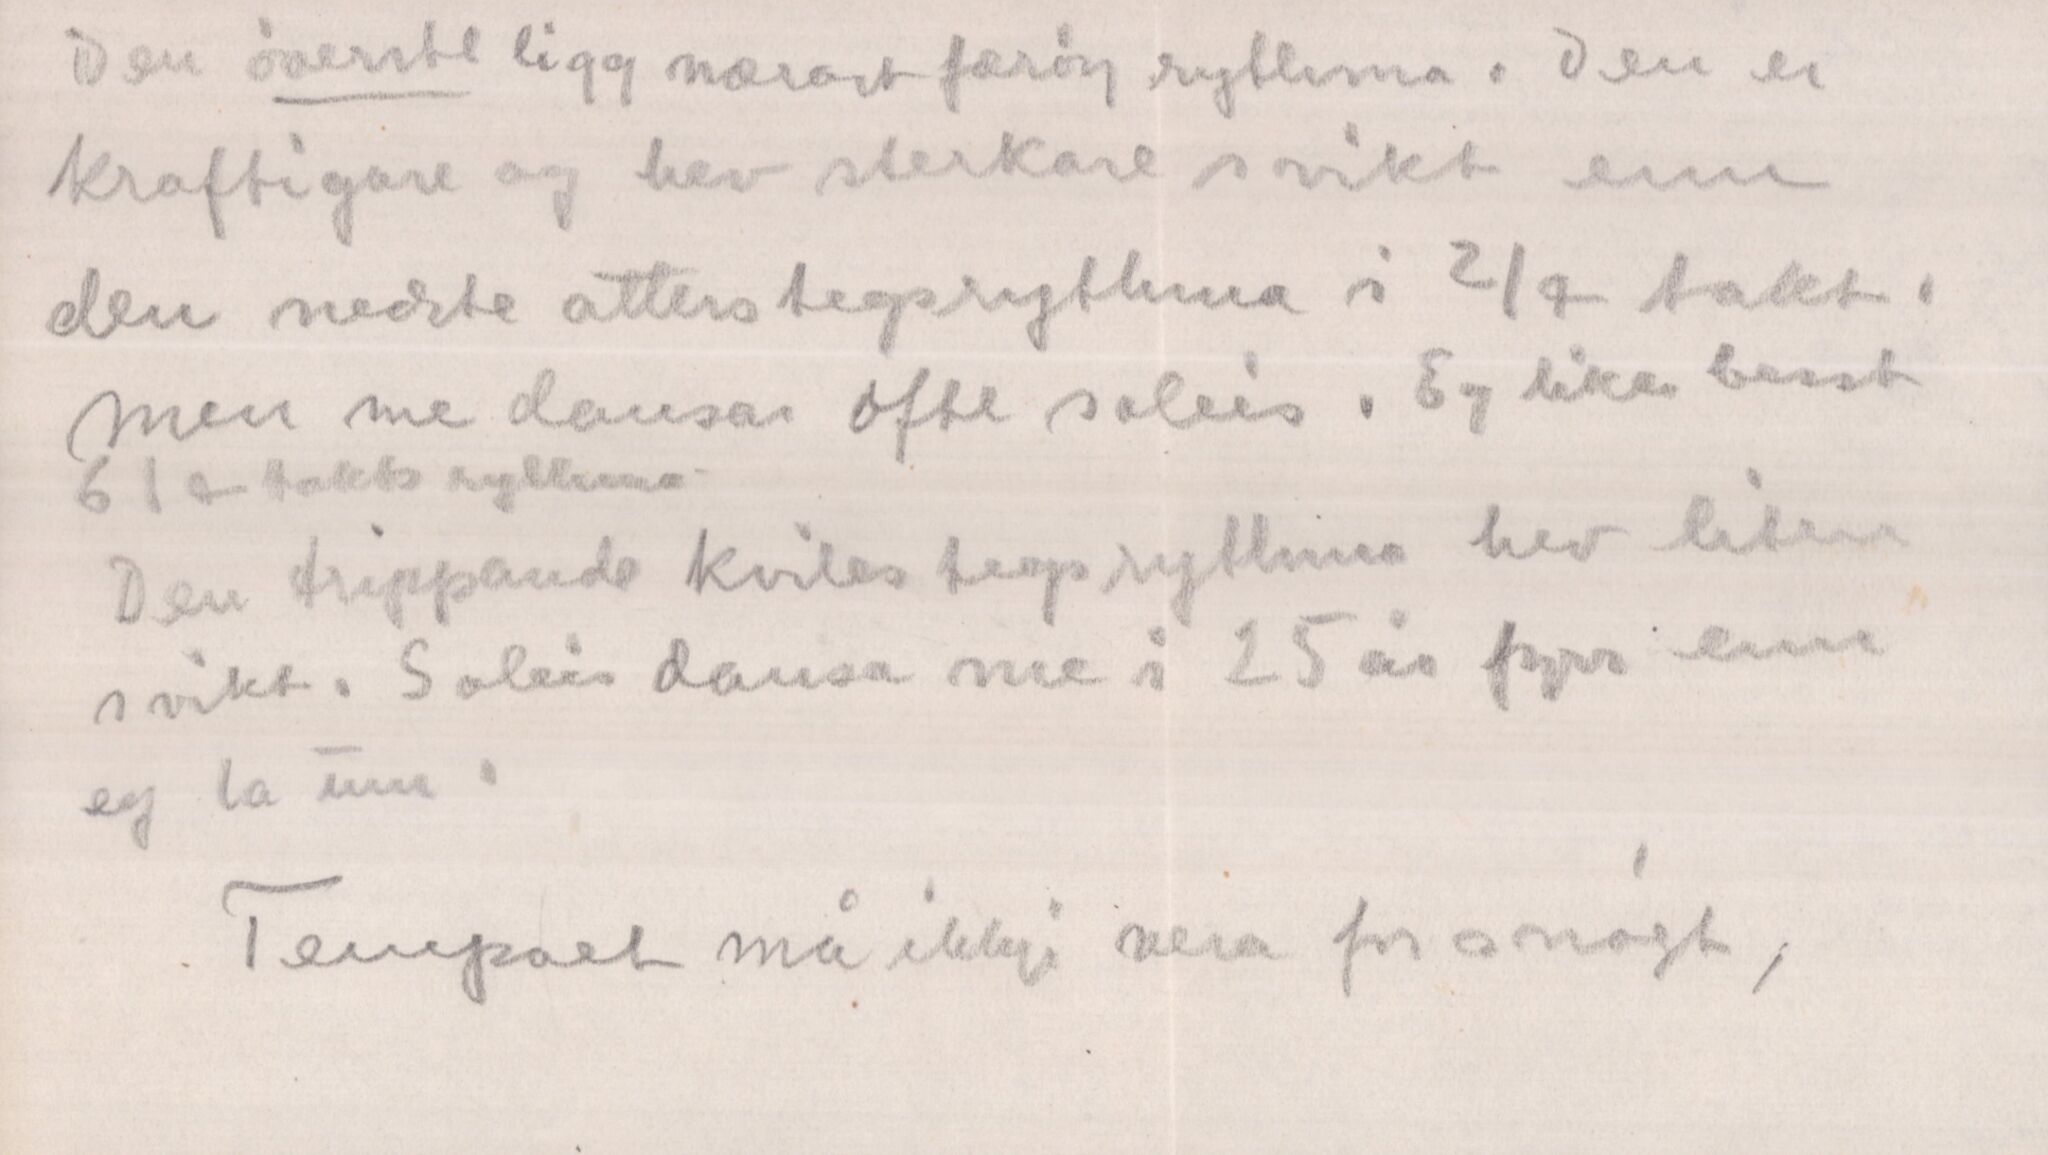 Den överste ligg nærast færöy rythma. Den er
kraftigare og hev sterkare svikt enn
den nedste atterstegsrythma i 2/4 takt.
Men me dansar ofte soleis. Eg likar besst
6/4 takts rythma
Den trippande kvilestegsrythma hev liten
svikt. Soleis dansa me i 25 år fyrr enn
eg la um.
Tempoet må ikkje vera for snögt,